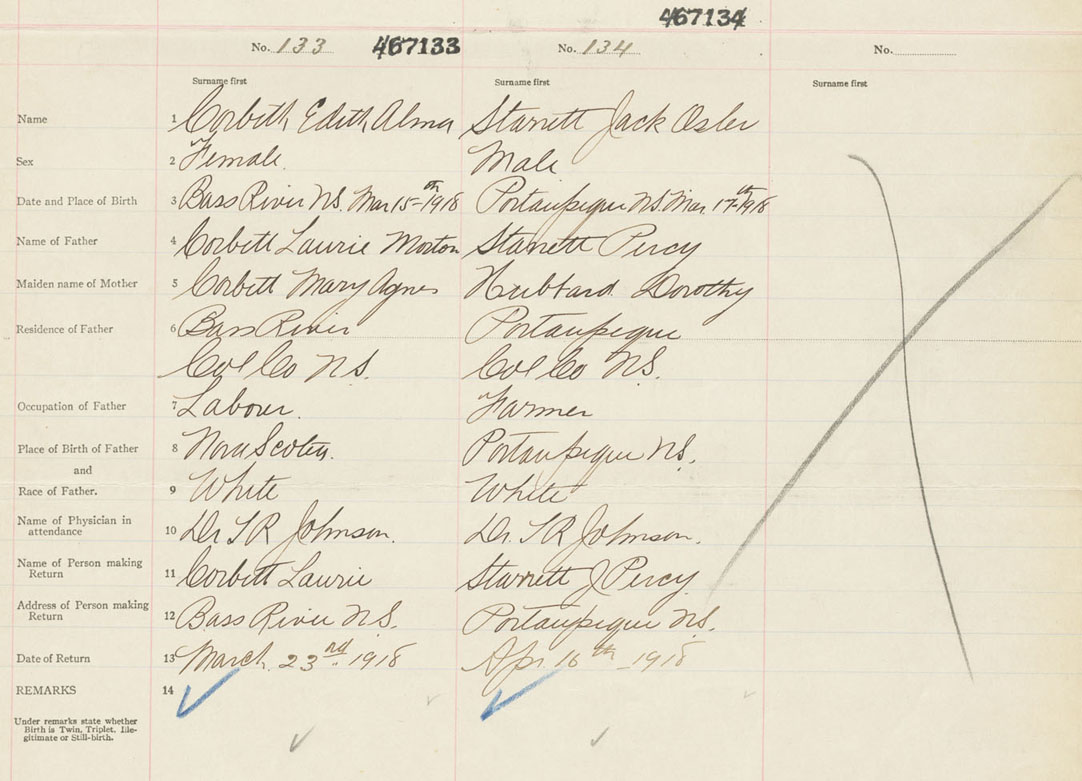 467134
No. 133 467133 No. 134 No.
Surname first Surname first Surname first
Name 1 Corbett, Edith Alma Starrett Jack Osler
Sex 2 Female. Male
Date and Place of Birth 3 Bass River N.S. Mar 15th 1918 Portaupique N.S. Mar. 17th 1918
Name of Father 4 Corbett Laurie Morton Starrett Percy
Maiden name of Mother 5 Corbett Mary Agnes Hubbard Dorothy
Residence of Father 6 Bass River Portaupique
Col Co N.S. Col Co N.S.
Occupation of Father 7 Labour. Farmer
Place of Birth of Father 8 Nova Scotia. Portaupique N.S.
and
Race of Father. 9 White White
Name of Physician in
attendance 10 Dr T R Johnson. Dr. T R Johnson.
Name of Person making
Return 11 Corbett Laurie Starrett J Percy
Address of Person making
Return 12 Bass River N.S. Portaupique N.S.
Date of Return 13 March 23rd 1918 Apr. 16th 1918
REMARKS 14
Under remarks state whether
Birth is Twin, Triplet, Ille-
gitimate or Still-birth.